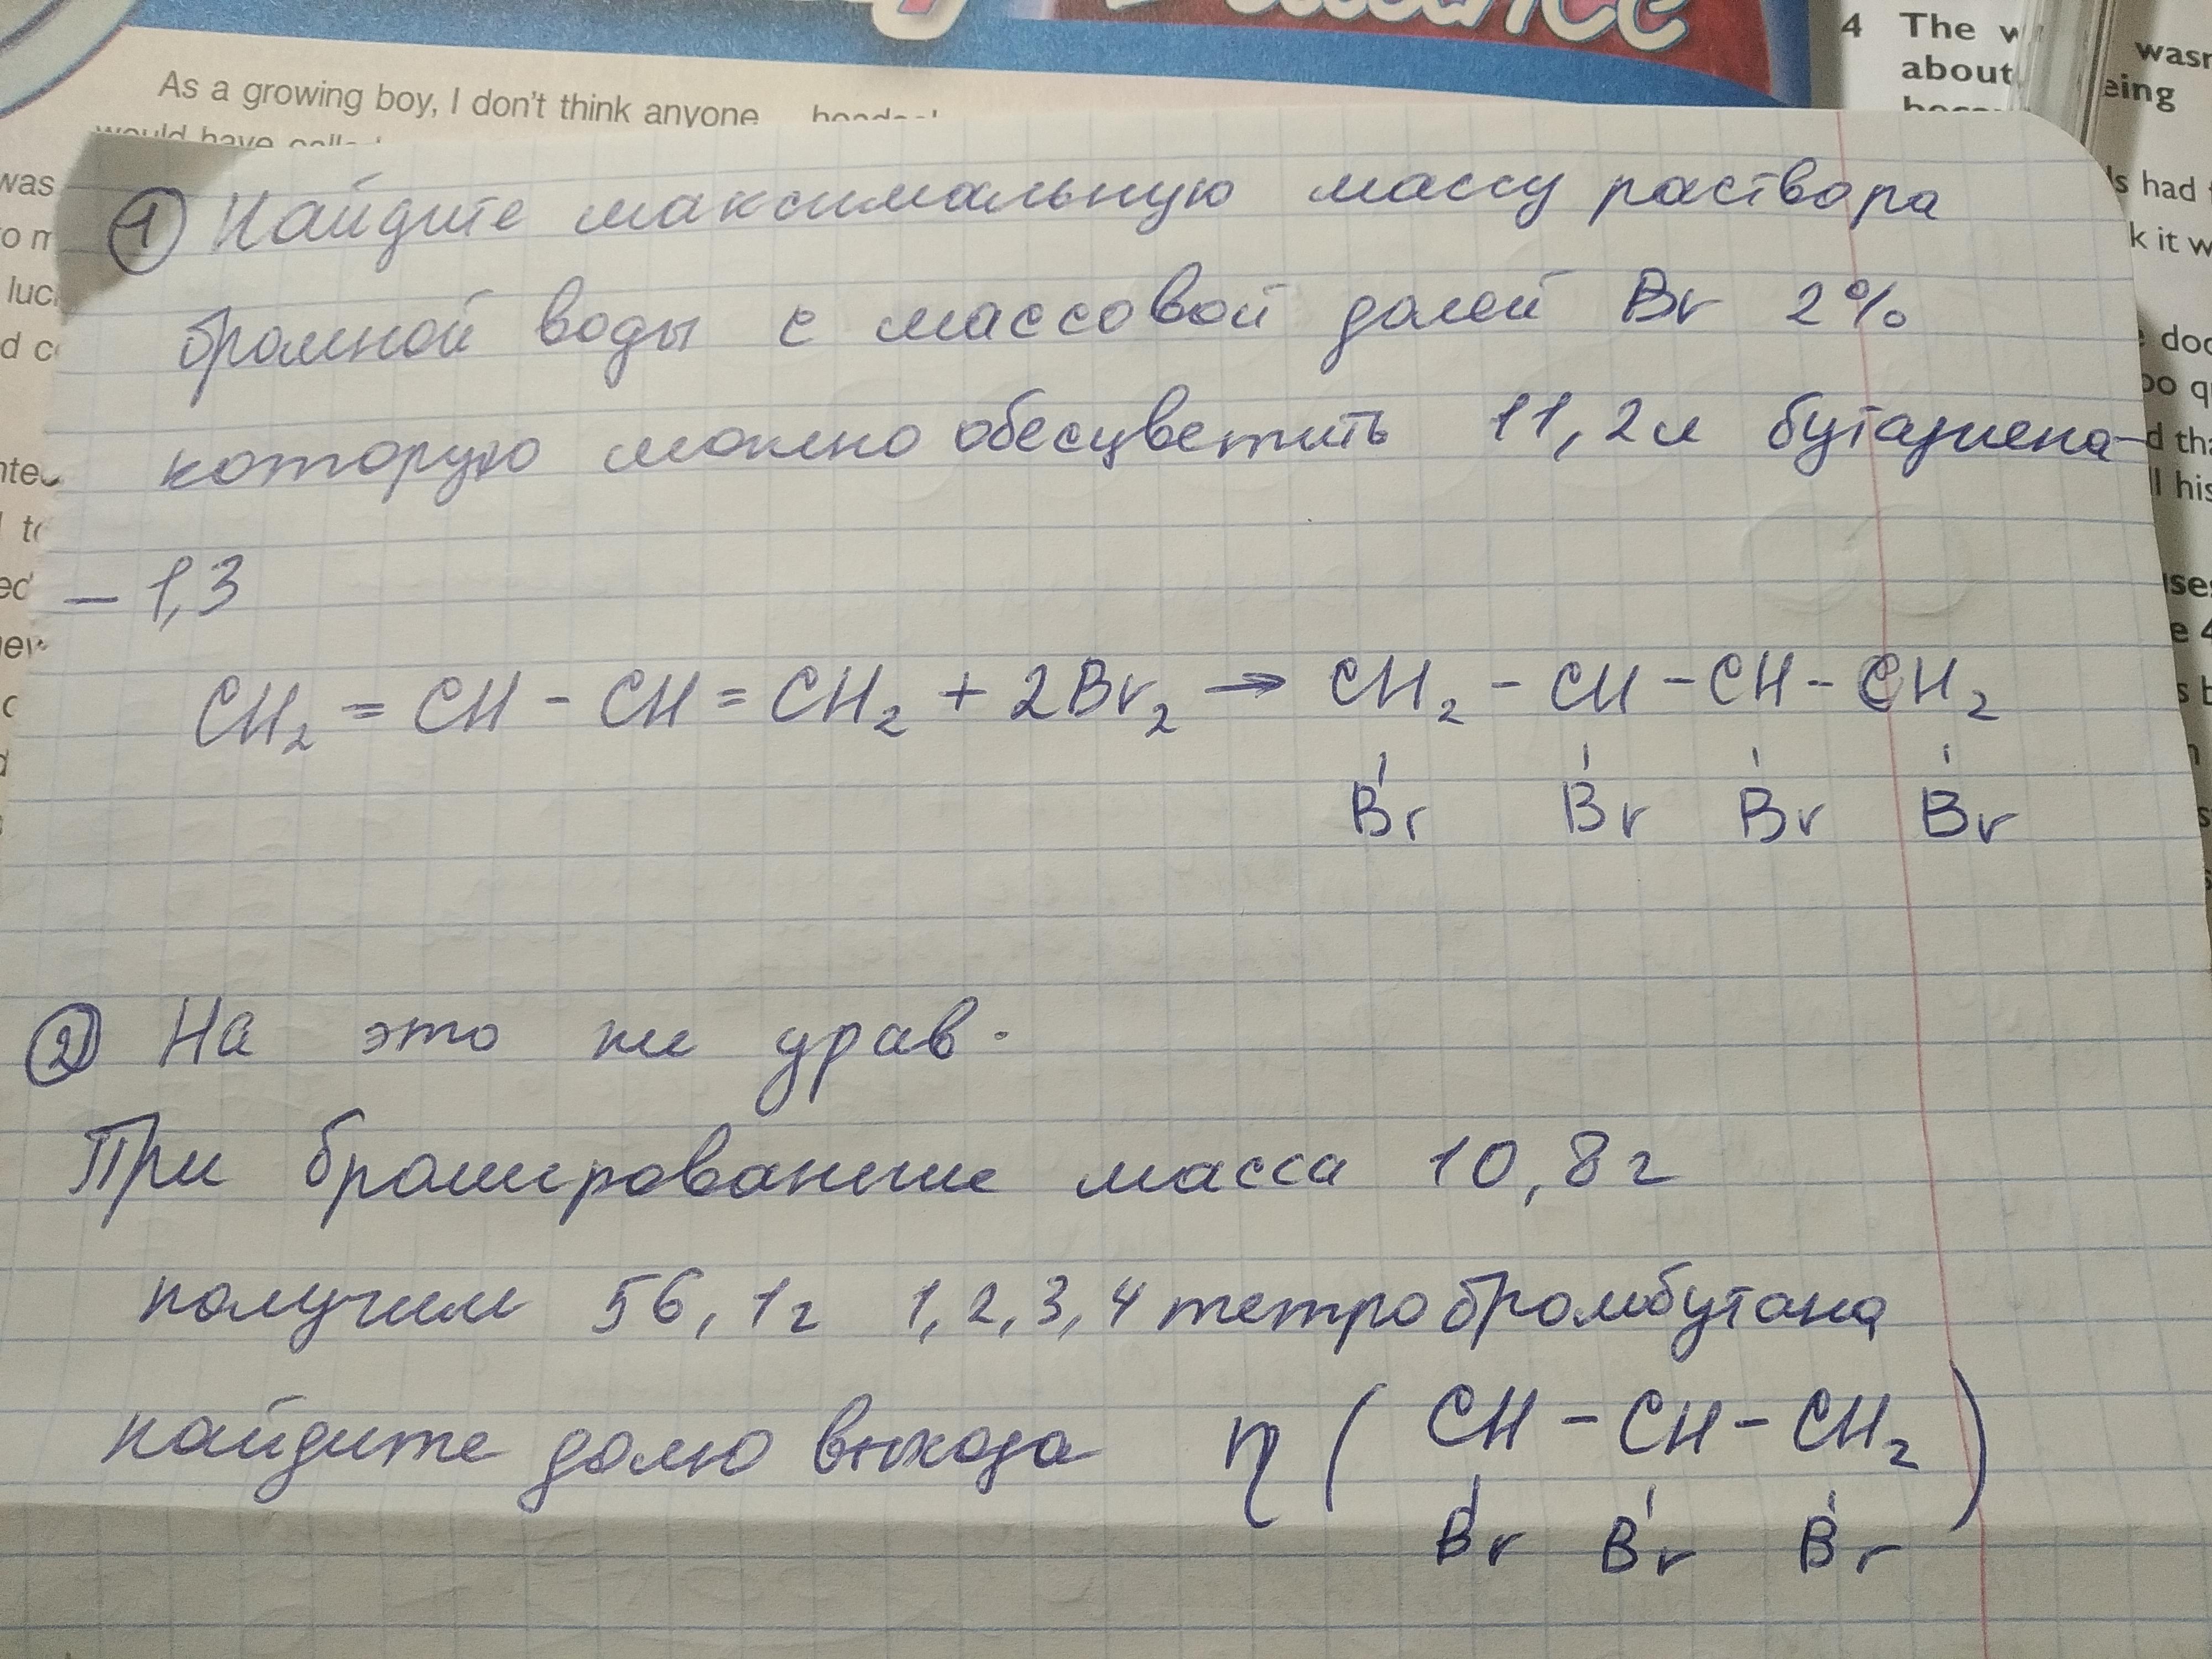 As a growing boy, I don't think anyone
would have
4 The
about
wasn
eing
was
luc
s had
k it w
① Найдите максимальную массу раствора
бромной воды с массовой долей Br 2%
которую можно обесцветить 11,2л бутадиена-
– 1,3
CH₂ = CH - CH = CH₂ + 2Br₂ → CH₂ - CH - CH - CH₂
Br Br Br Br
② На это же урав.
При бромировании масса 10,8г
получили 56,1г 1,2,3,4 тетробромбутана
найдите долю выхода η ( CH - CH - CH₂ )
Br Br Br